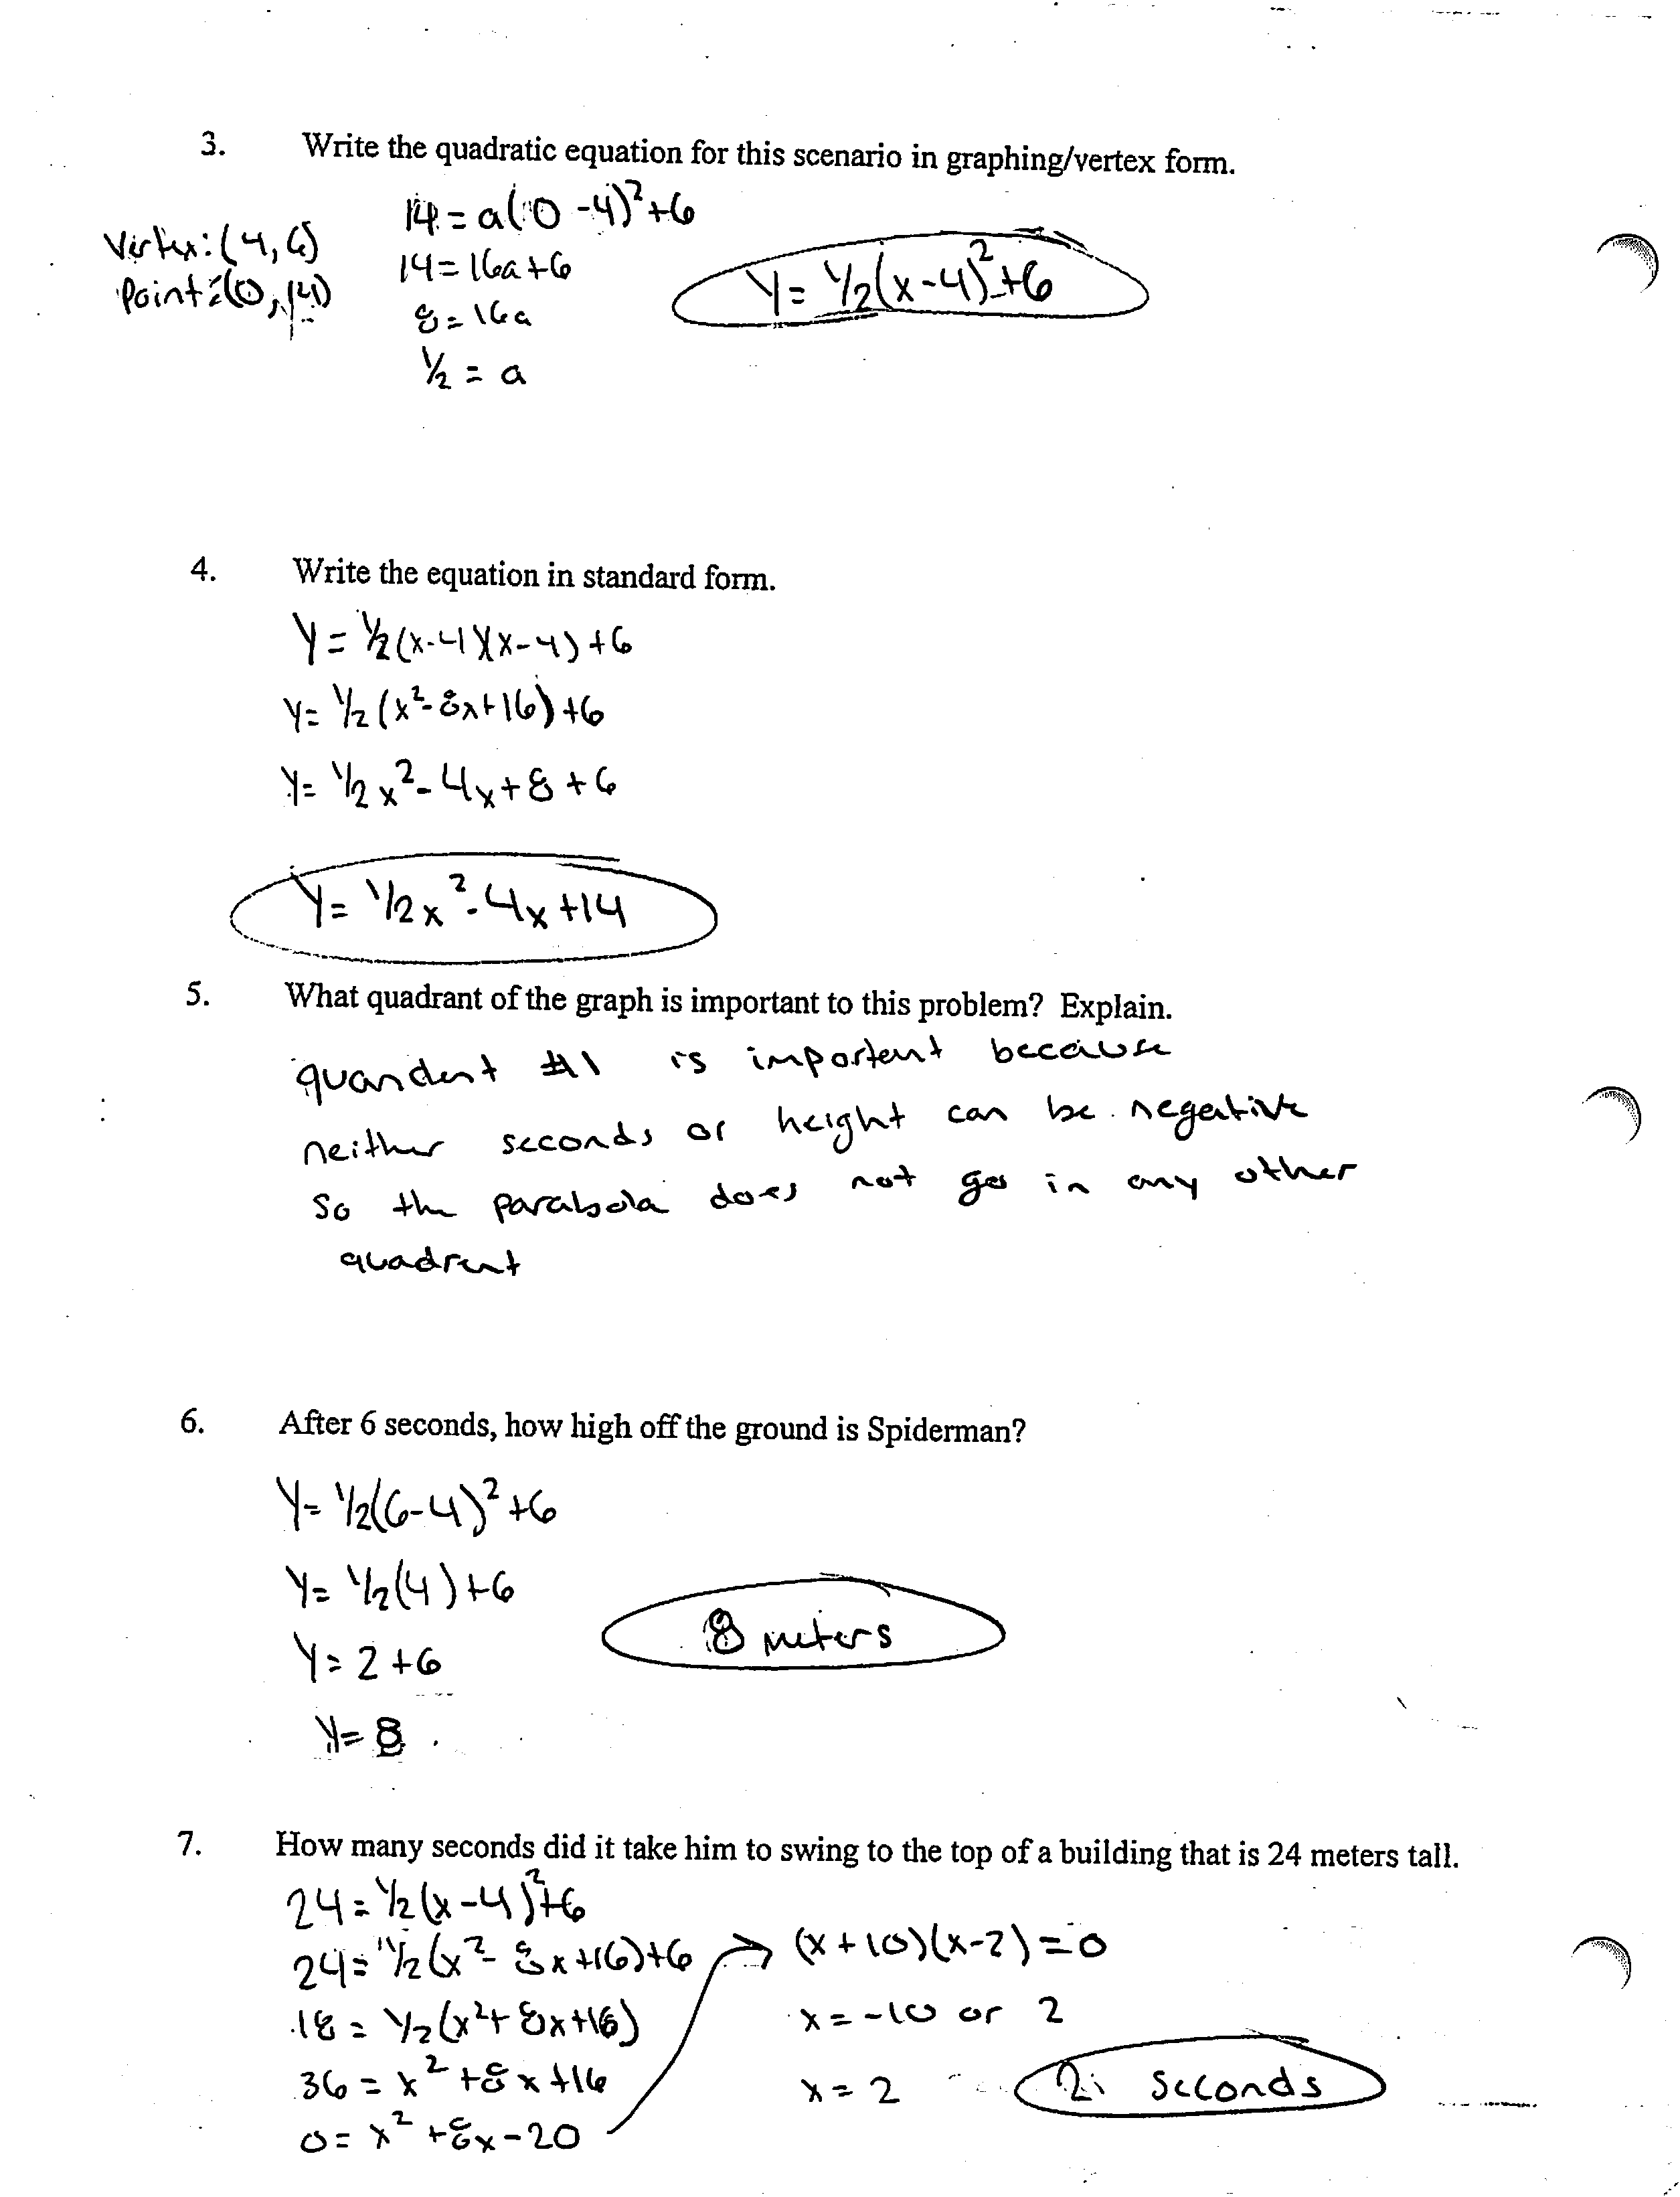 3. Write the quadratic equation for this scenario in graphing/vertex form.
Vertex: (4, 6)
Point: (0, 14)
14 = a(0 - 4)² + 6
14 = 16a + 6
8 = 16a
1/2 = a
Y = 1/2(x - 4)² + 6
4. Write the equation in standard form.
Y = 1/2(x-4)(x-4) + 6
Y = 1/2(x² - 8x + 16) + 6
Y = 1/2x² - 4x + 8 + 6
Y = 1/2x² - 4x + 14
5. What quadrant of the graph is important to this problem? Explain.
quandent #1 is important because
neither seconds or height can be negative
so the parabola does not go in any other
quadrent
6. After 6 seconds, how high off the ground is Spiderman?
Y = 1/2(6-4)² + 6
Y = 1/2(4) + 6
Y = 2 + 6
Y = 8
8 meters
7. How many seconds did it take him to swing to the top of a building that is 24 meters tall.
24 = 1/2(x - 4)² + 6
24 = 1/2(x² - 8x + 16) + 6
18 = 1/2(x² + 8x + 16)
36 = x² + 8x + 16
0 = x² + 8x - 20
(x + 10)(x - 2) = 0
x = -10 or 2
x = 2
2 seconds